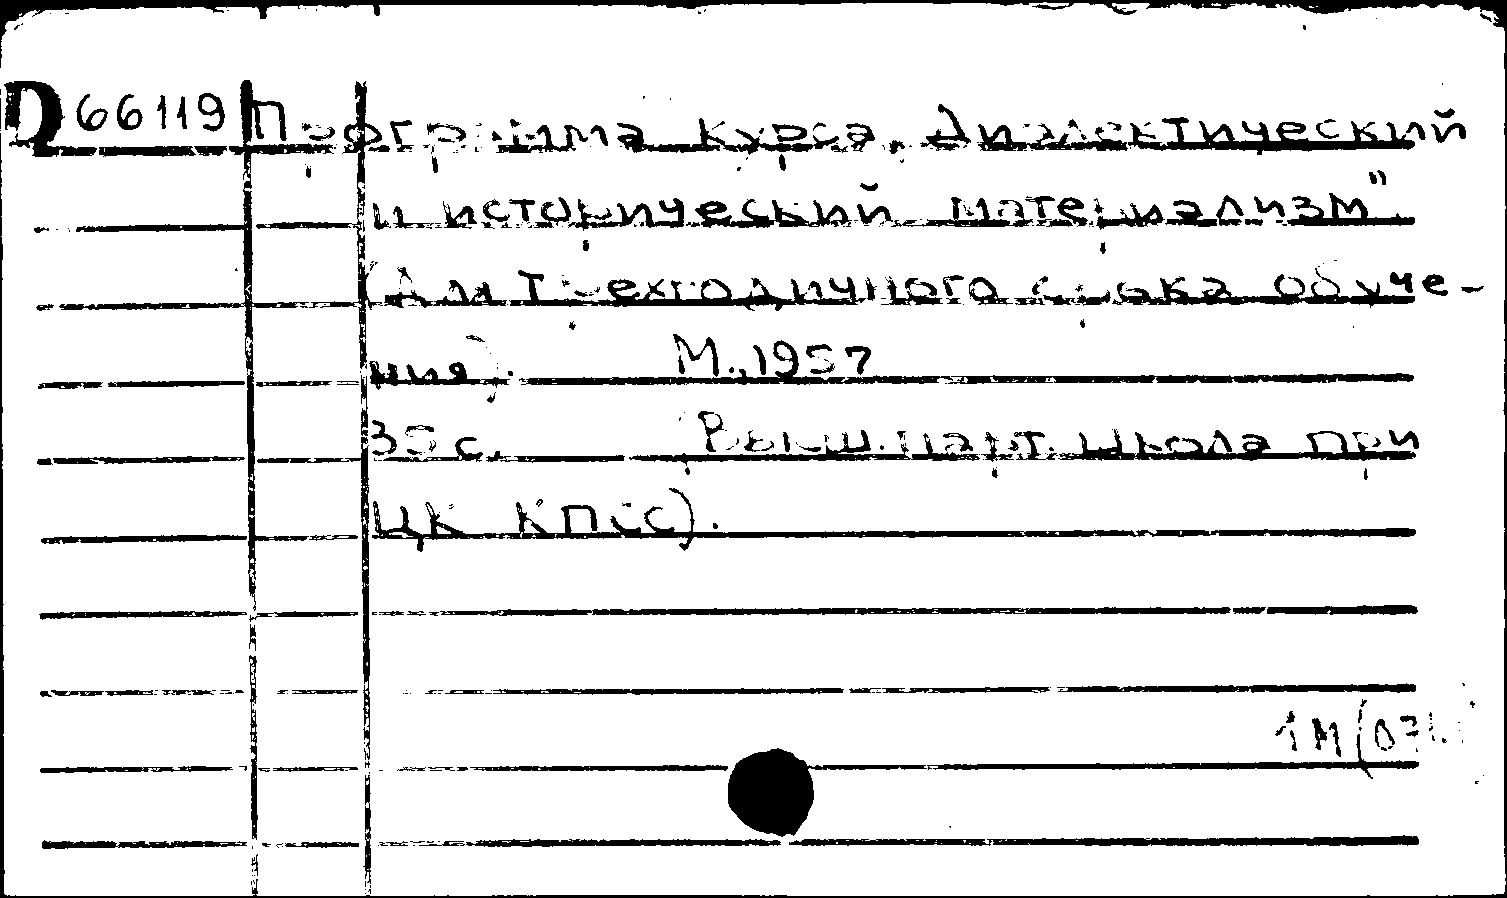 D 66119 Программа курса „Диалектический
и исторический материализм".
(Для трехгодичного срока обуче-
ния). М., 1957
35 с. Высш. парт. школа при
ЦК КПСС).
1М(071.